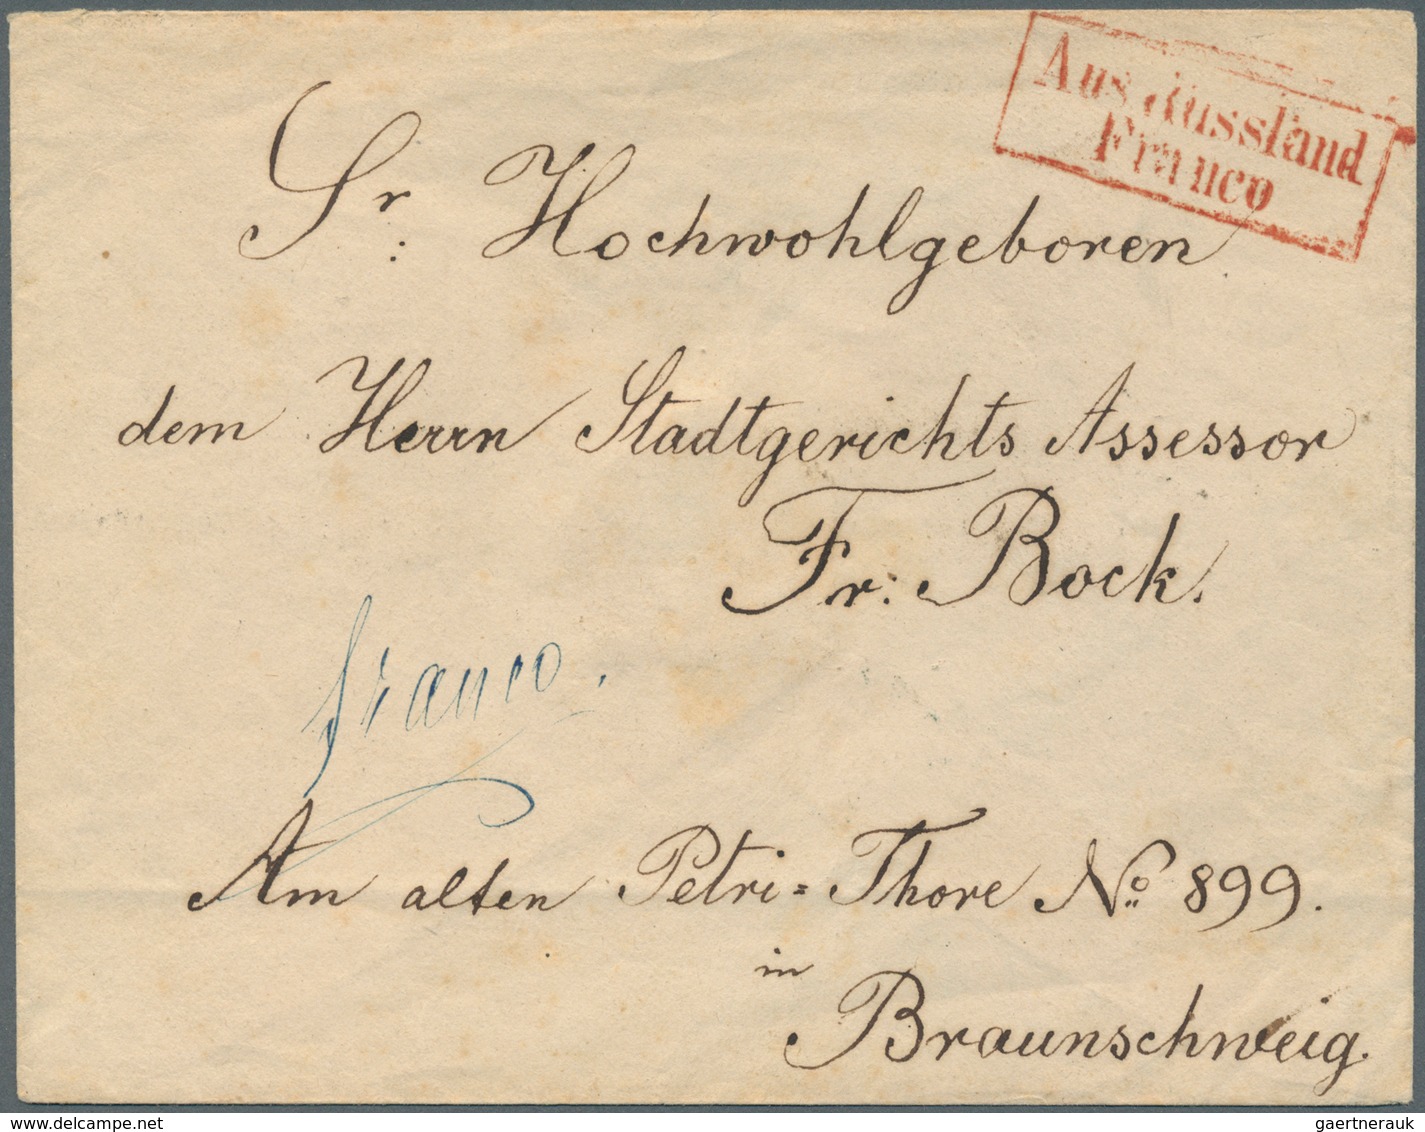 Aus Russland
Franco
Sr: Hochwohlgeboren
dem Herrn Stadtgerichts Assessor
Fr: Bock.
franco.
Am alten Petri=Thore No 899.
in
Braunschweig.
www.delcampe.net
gaertnerauk